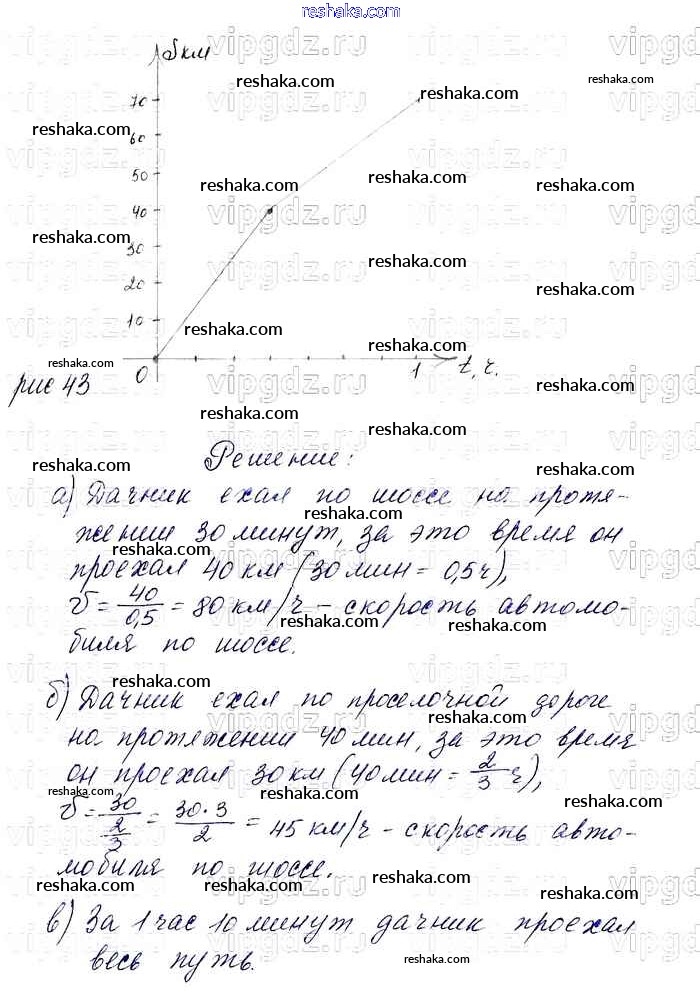 reshaka.com
S км
70
60
50
40
30
20
10
0
1
t, ч.
рис 43
Решение:
а) Дачник ехал по шоссе на протя-
жении 30 минут, за это время он
проехал 40 км (30 мин = 0,5 ч),
v = 40/0,5 = 80 км/ч – скорость автомо-
биля по шоссе.
б) Дачник ехал по проселочной дороге
на протяжении 40 мин, за это время
он проехал 30 км (40 мин = 2/3 ч),
v = 30/(2/3) = 30·3/2 = 45 км/ч – скорость авто-
мобиля по шоссе.
в) За 1 час 10 минут дачник проехал
весь путь.
vipgdz.ru